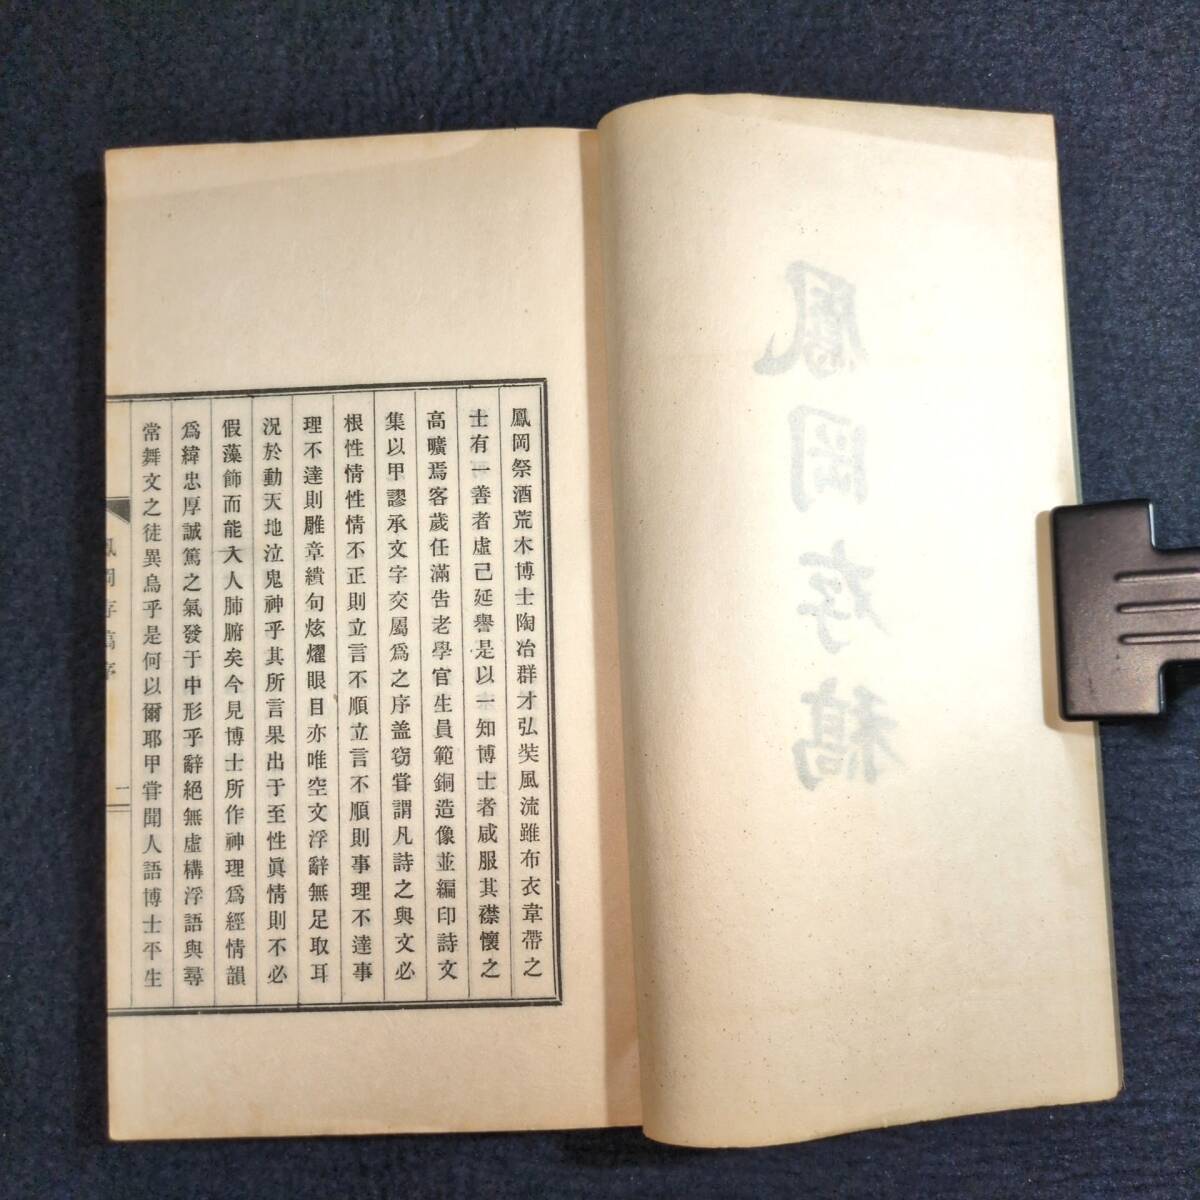 鳳岡存稿
鳳岡祭酒荒木博士陶冶群才弘奘風流雖布衣韋帶之
士有一善者虛己延譽是以一知博士者咸服其襟懷之
高曠焉客歲任滿告老學官生員範銅造像並編印詩文
集以甲謬承文字交屬爲之序盖窃嘗謂凡詩之與文必
根性情性情不正則立言不順立言不順則事理不達事
理不達則雕章繢句炫燿眼目亦唯空文浮辭無足取耳
況於動天地泣鬼神乎其所言果出于至性眞情則不必
假藻飾而能入人肺腑矣今見博士所作神理爲經情韻
爲緯忠厚誠篤之氣發于中形乎辭絕無虛構浮語與尋
常舞文之徒異烏乎是何以爾耶甲甞聞人語博士平生
鳳岡存稿序
一